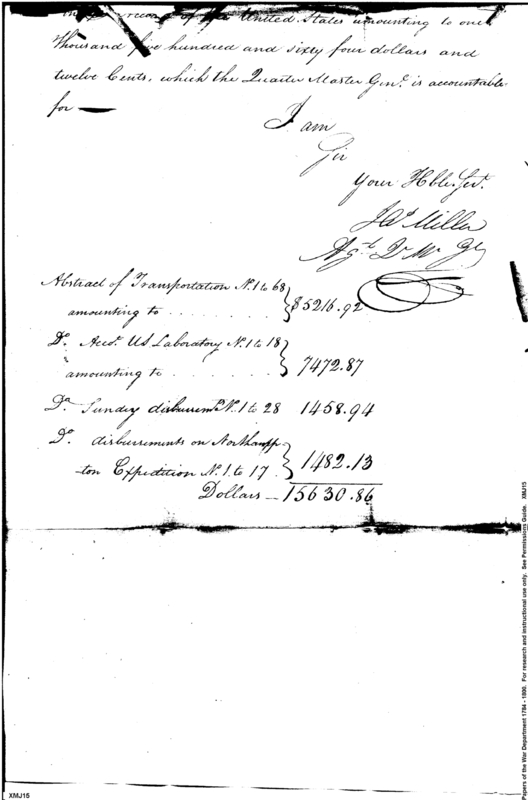 of the United States amounting to one
thousand five hundred and sixty four dollars and
twelve Cents, which the Quarter Master Genl. is accountable
for —
I am
Sir
Your Hble. Sert.
Jas Miller
Agt Qr Mr Gl
Abstract of Transportation No. 1 to 68
amounting to . . . . . . . } $5216.92
Do. Acco. US Laboratory No. 1 to 18
amounting to . . . . . . . } 7472.87
Do. Sundry disbursemts No. 1 to 28 1458.94
Do. disbursements on Northamp-
-ton Expedition No. 1. to 17. } 1482.13
Dollars — 15630.86
XMJ15
Papers of the War Department 1784 - 1800. For research and instructional use only. See Permissions Guide. XMJ15